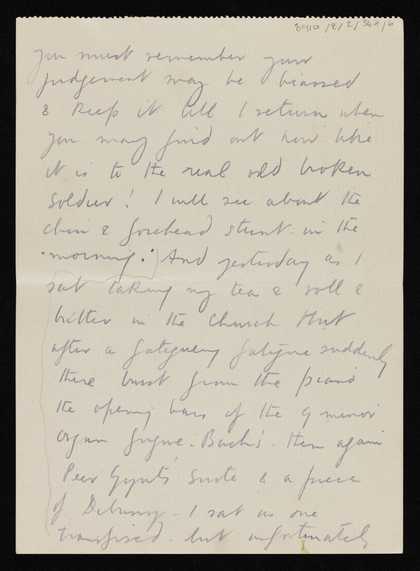 you must remember your
judgement may be biassed
& keep it till I return when
you may find out how like
it is to the real old broken
soldier! I will see about the
chin & forehead stunt in the
morning. And yesterday as I
sat taking my tea & roll &
butter in the Church Hut
after a fatiguing fatigue suddenly
there burst from the piano
the opening bars of the G minor
organ fugue - Bach's. then again
Peer Gynt's suite & a piece
of Debussy - I sat as one
transfixed - but unfortunately